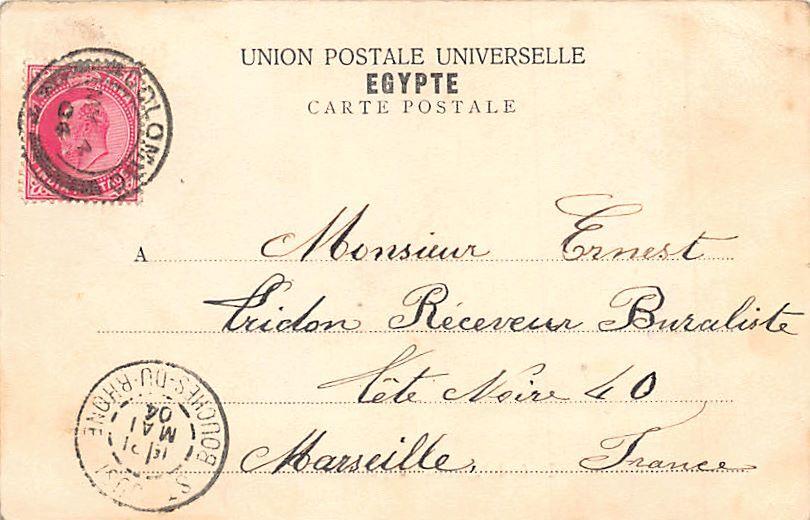 UNION POSTALE UNIVERSELLE
EGYPTE
CARTE POSTALE
COLOMBO
04
A Monsieur Ernest
Tridon Receveur Buraliste
Tête Noire 40
Marseille, France
BOUCHES-DU-RHONE
21
MAI
04